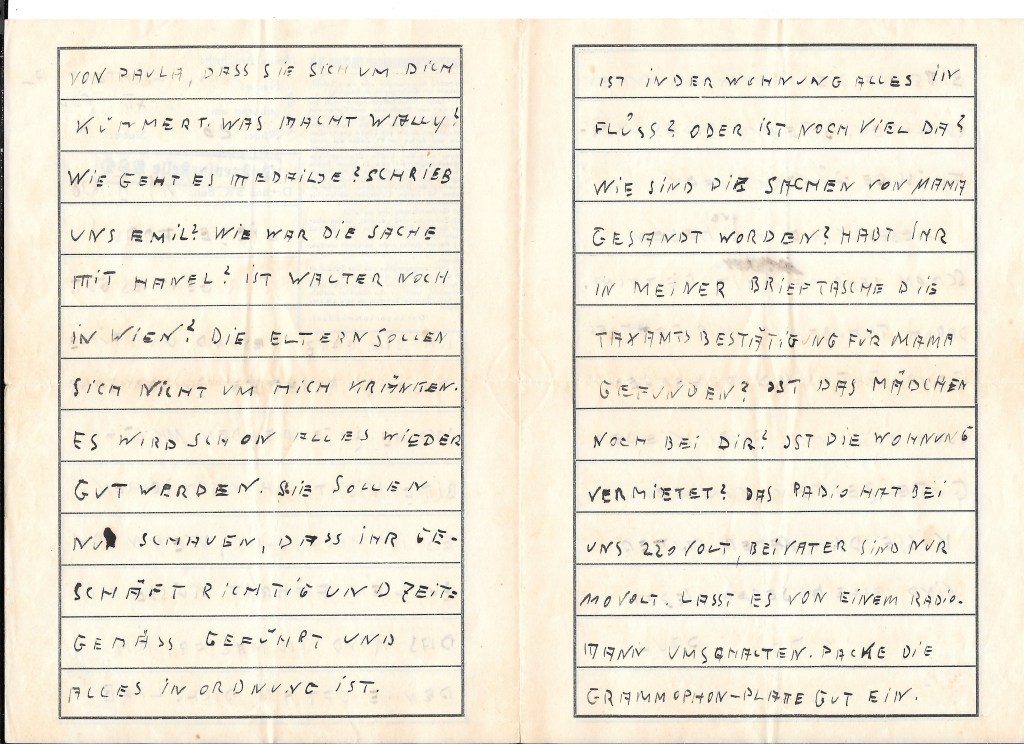 VON PAULA, DASS SIE SICH UM DICH
KÜMMERT. WAS MACHT WALLY?
WIE GEHT ES ? SCHRIEB
UNS EMIL? WIE WAR DIE SACHE
MIT HANEL? IST WALTER NOCH
IN WIEN? DIE ELTERN SOLLEN
SICH NICHT UM MICH KRÄNKEN.
ES WIRD SCHON ALLES WIEDER
GUT WERDEN. SIE SOLLEN
NUR SCHAUEN, DASS IHR GE-
SCHÄFT RICHTIG UND ZEIT=
GEMÄSS GEFÜHRT UND
ALLES IN ORDNUNG IST.
IST IN DER WOHNUNG ALLES IN
FLUSS? ODER IST NOCH VIEL DA?
WIE SIND DIE SACHEN VON MAMA
GESANDT WORDEN? HABT IHR
IN MEINER BRIEFTASCHE DIE
TAXAMTSBESTÄTIGUNG FÜR MAMA
GEFUNDEN? IST DAS MÄDCHEN
NOCH BEI DIR? IST DIE WOHNUNG
VERMIETET? DAS RADIO HAT BEI
UNS 220 VOLT, BEI VATER SIND NUR
110 VOLT. LASST ES VON EINEM RADIO-
MANN UMSCHALTEN. PACKE DIE
GRAMMOPHON-PLATTE GUT EIN.